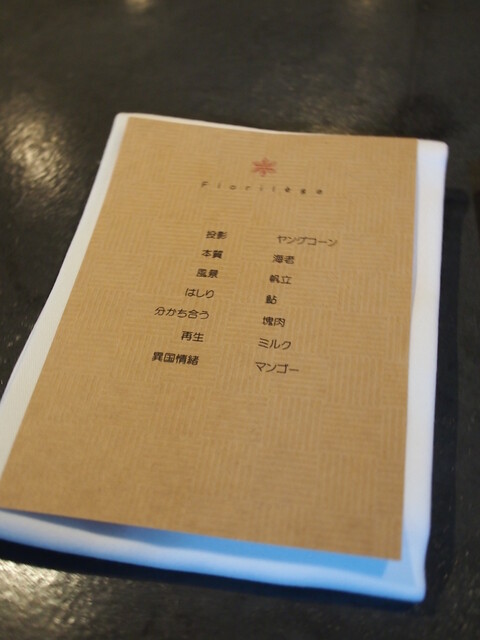 Florilege
投影 ヤングコーン
本質 海老
風景 帆立
はしり 鮎
分かち合う 塊肉
再生 ミルク
異国情緒 マンゴー